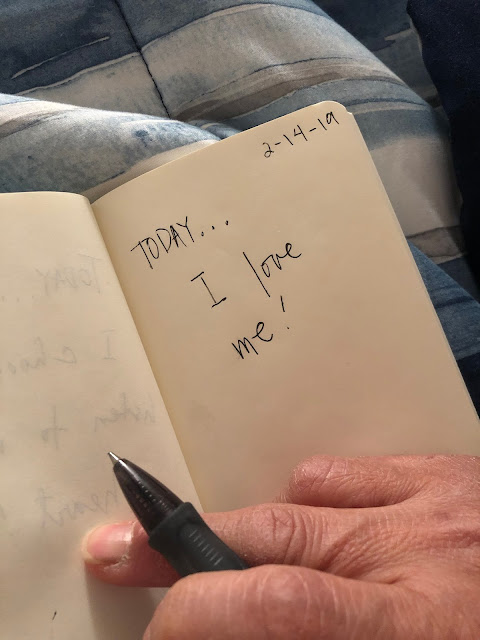 2-14-19
TODAY...
I love
me!